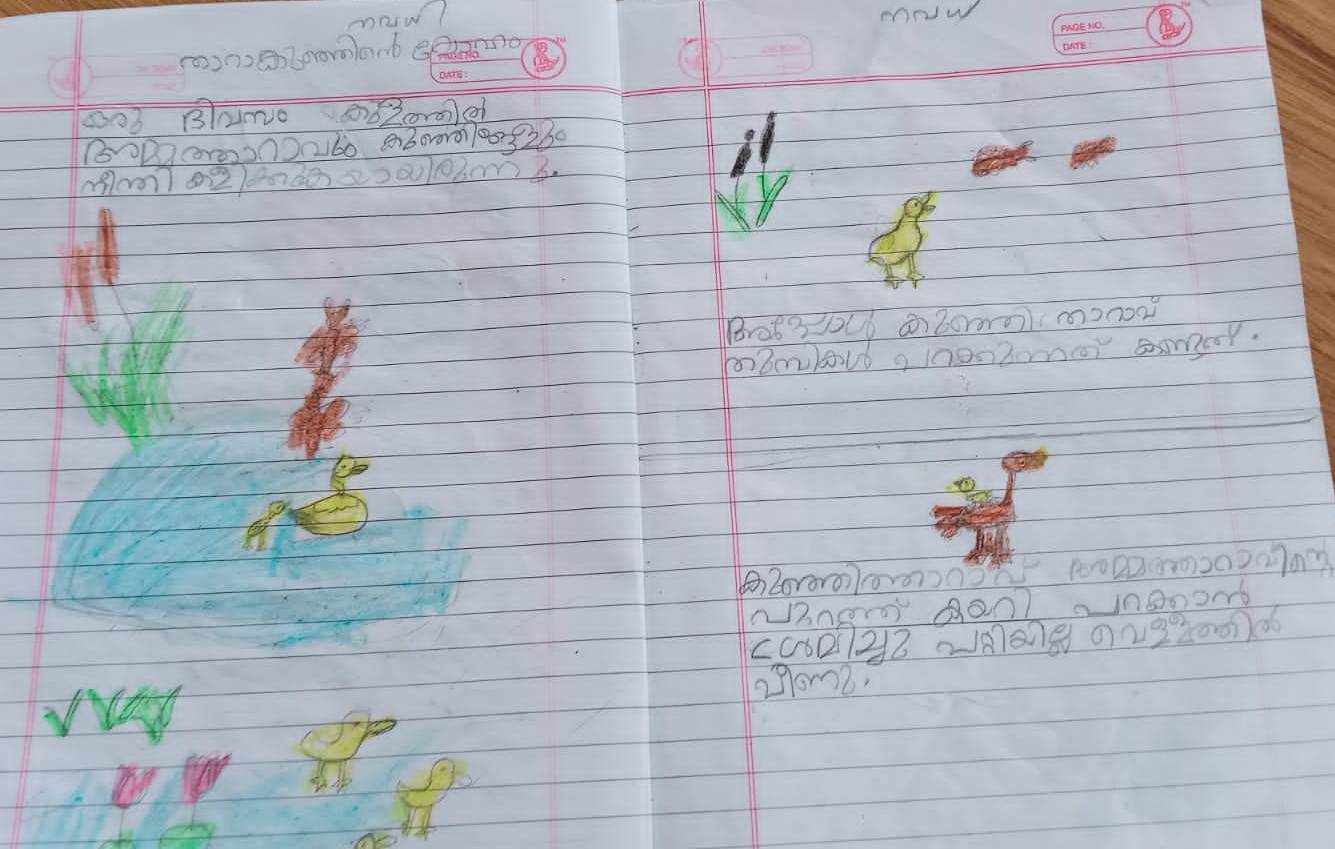 നവധി
താറാകുഞ്ഞിന്റെ മോഹം
PAGE NO.
DATE:
ഒരു ദിവസം കുളത്തിൽ
അമ്മത്താറാവും കുഞ്ഞിങ്ങളും
നീന്തി കളിക്കുകയായിരുന്നു.
നവധി
PAGE NO.
DATE:
അപ്പോൾ കുഞ്ഞി താറാവ്
തുമ്പികൾ പറക്കുന്നത് കണ്ടത്.
കുഞ്ഞിത്താറാവ് അമ്മത്താറാവിന്റെ
പുറത്ത് കയറി പറക്കാൻ
ശ്രമിച്ചു പറ്റിയില്ല വെള്ളത്തിൽ
വീണു.